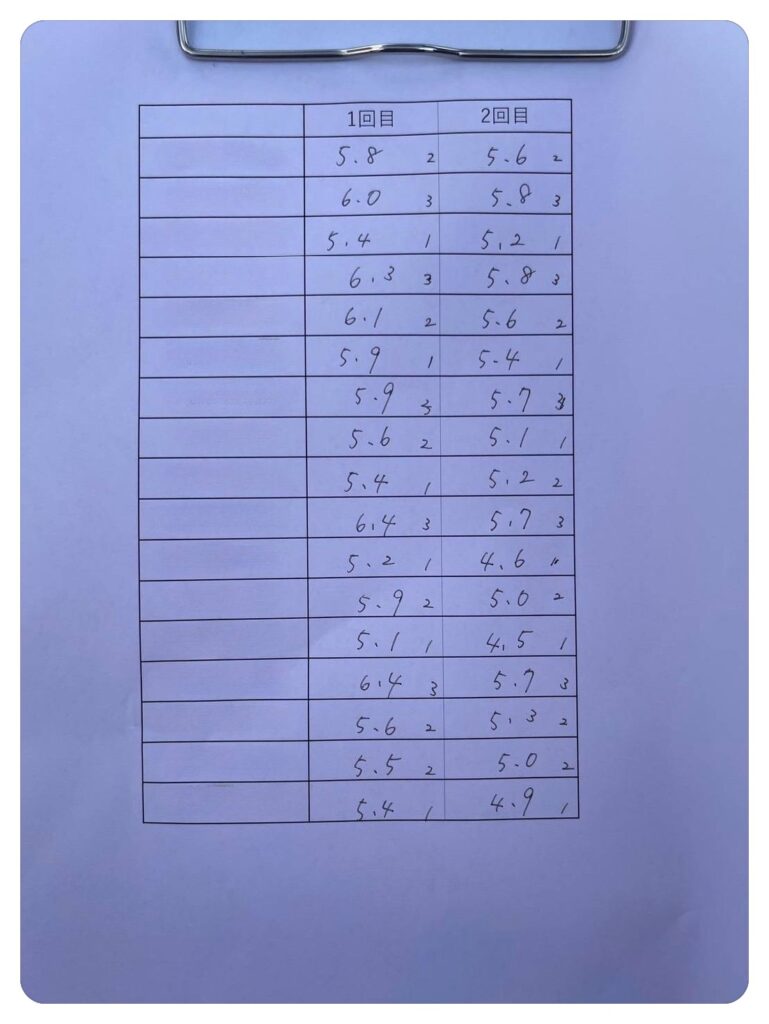 1回目 2回目
5.8 2 5.6 2
6.0 3 5.8 3
5.4 1 5.2 1
6.3 3 5.8 3
6.1 2 5.6 2
5.9 1 5.4 1
5.9 5.7
5.6 2 5.1 1
5.4 1 5.2 2
6.4 3 5.7 3
5.2 1 4.6
5.9 2 5.0 2
5.1 1 4.5 1
6.4 3 5.7 3
5.6 2 5.3 2
5.5 2 5.0 2
5.4 1 4.9 1